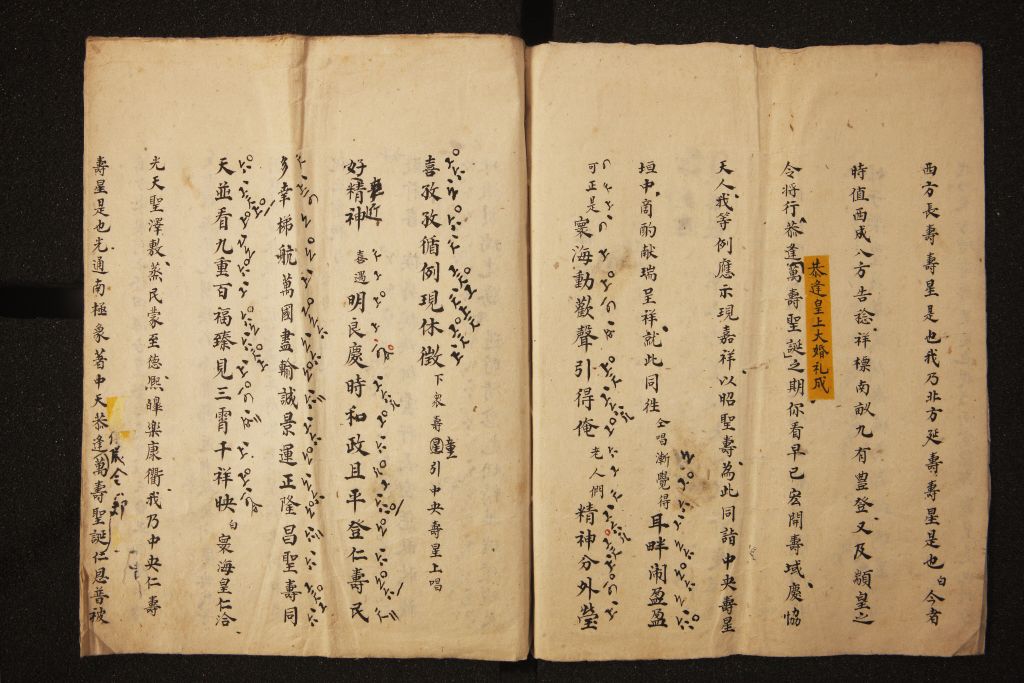 西方長壽壽星是也我乃北方延壽壽星是也白今者
時值西成八方告稔祥標南畝九有豐登又及顓皇之
令將行恭逢萬壽聖誕之期你看早已宏開壽域慶協
恭逢皇上大婚礼成
天人我等例應示現嘉祥以昭聖壽為此同詣中央壽星
垣中商酌献瑞呈祥就此同徃仝唱漸覺得耳畔闹盈盈
可正是寰海動歡聲引得俺老人們精神分外瑩
喜孜孜循例現休徵下衆壽星童引中央壽星上唱
好精神喜遇明良慶時和政且平登仁壽民
多幸梯航萬國盡輸誠景運正隆昌聖壽同
天並看九重百福臻見三霄千祥映白寰海皇仁洽
光天聖澤敷蒸民蒙至德熙皞樂康衢我乃中央仁壽
壽星是也光通南極象著中天恭逢萬壽聖誕仁恩普被